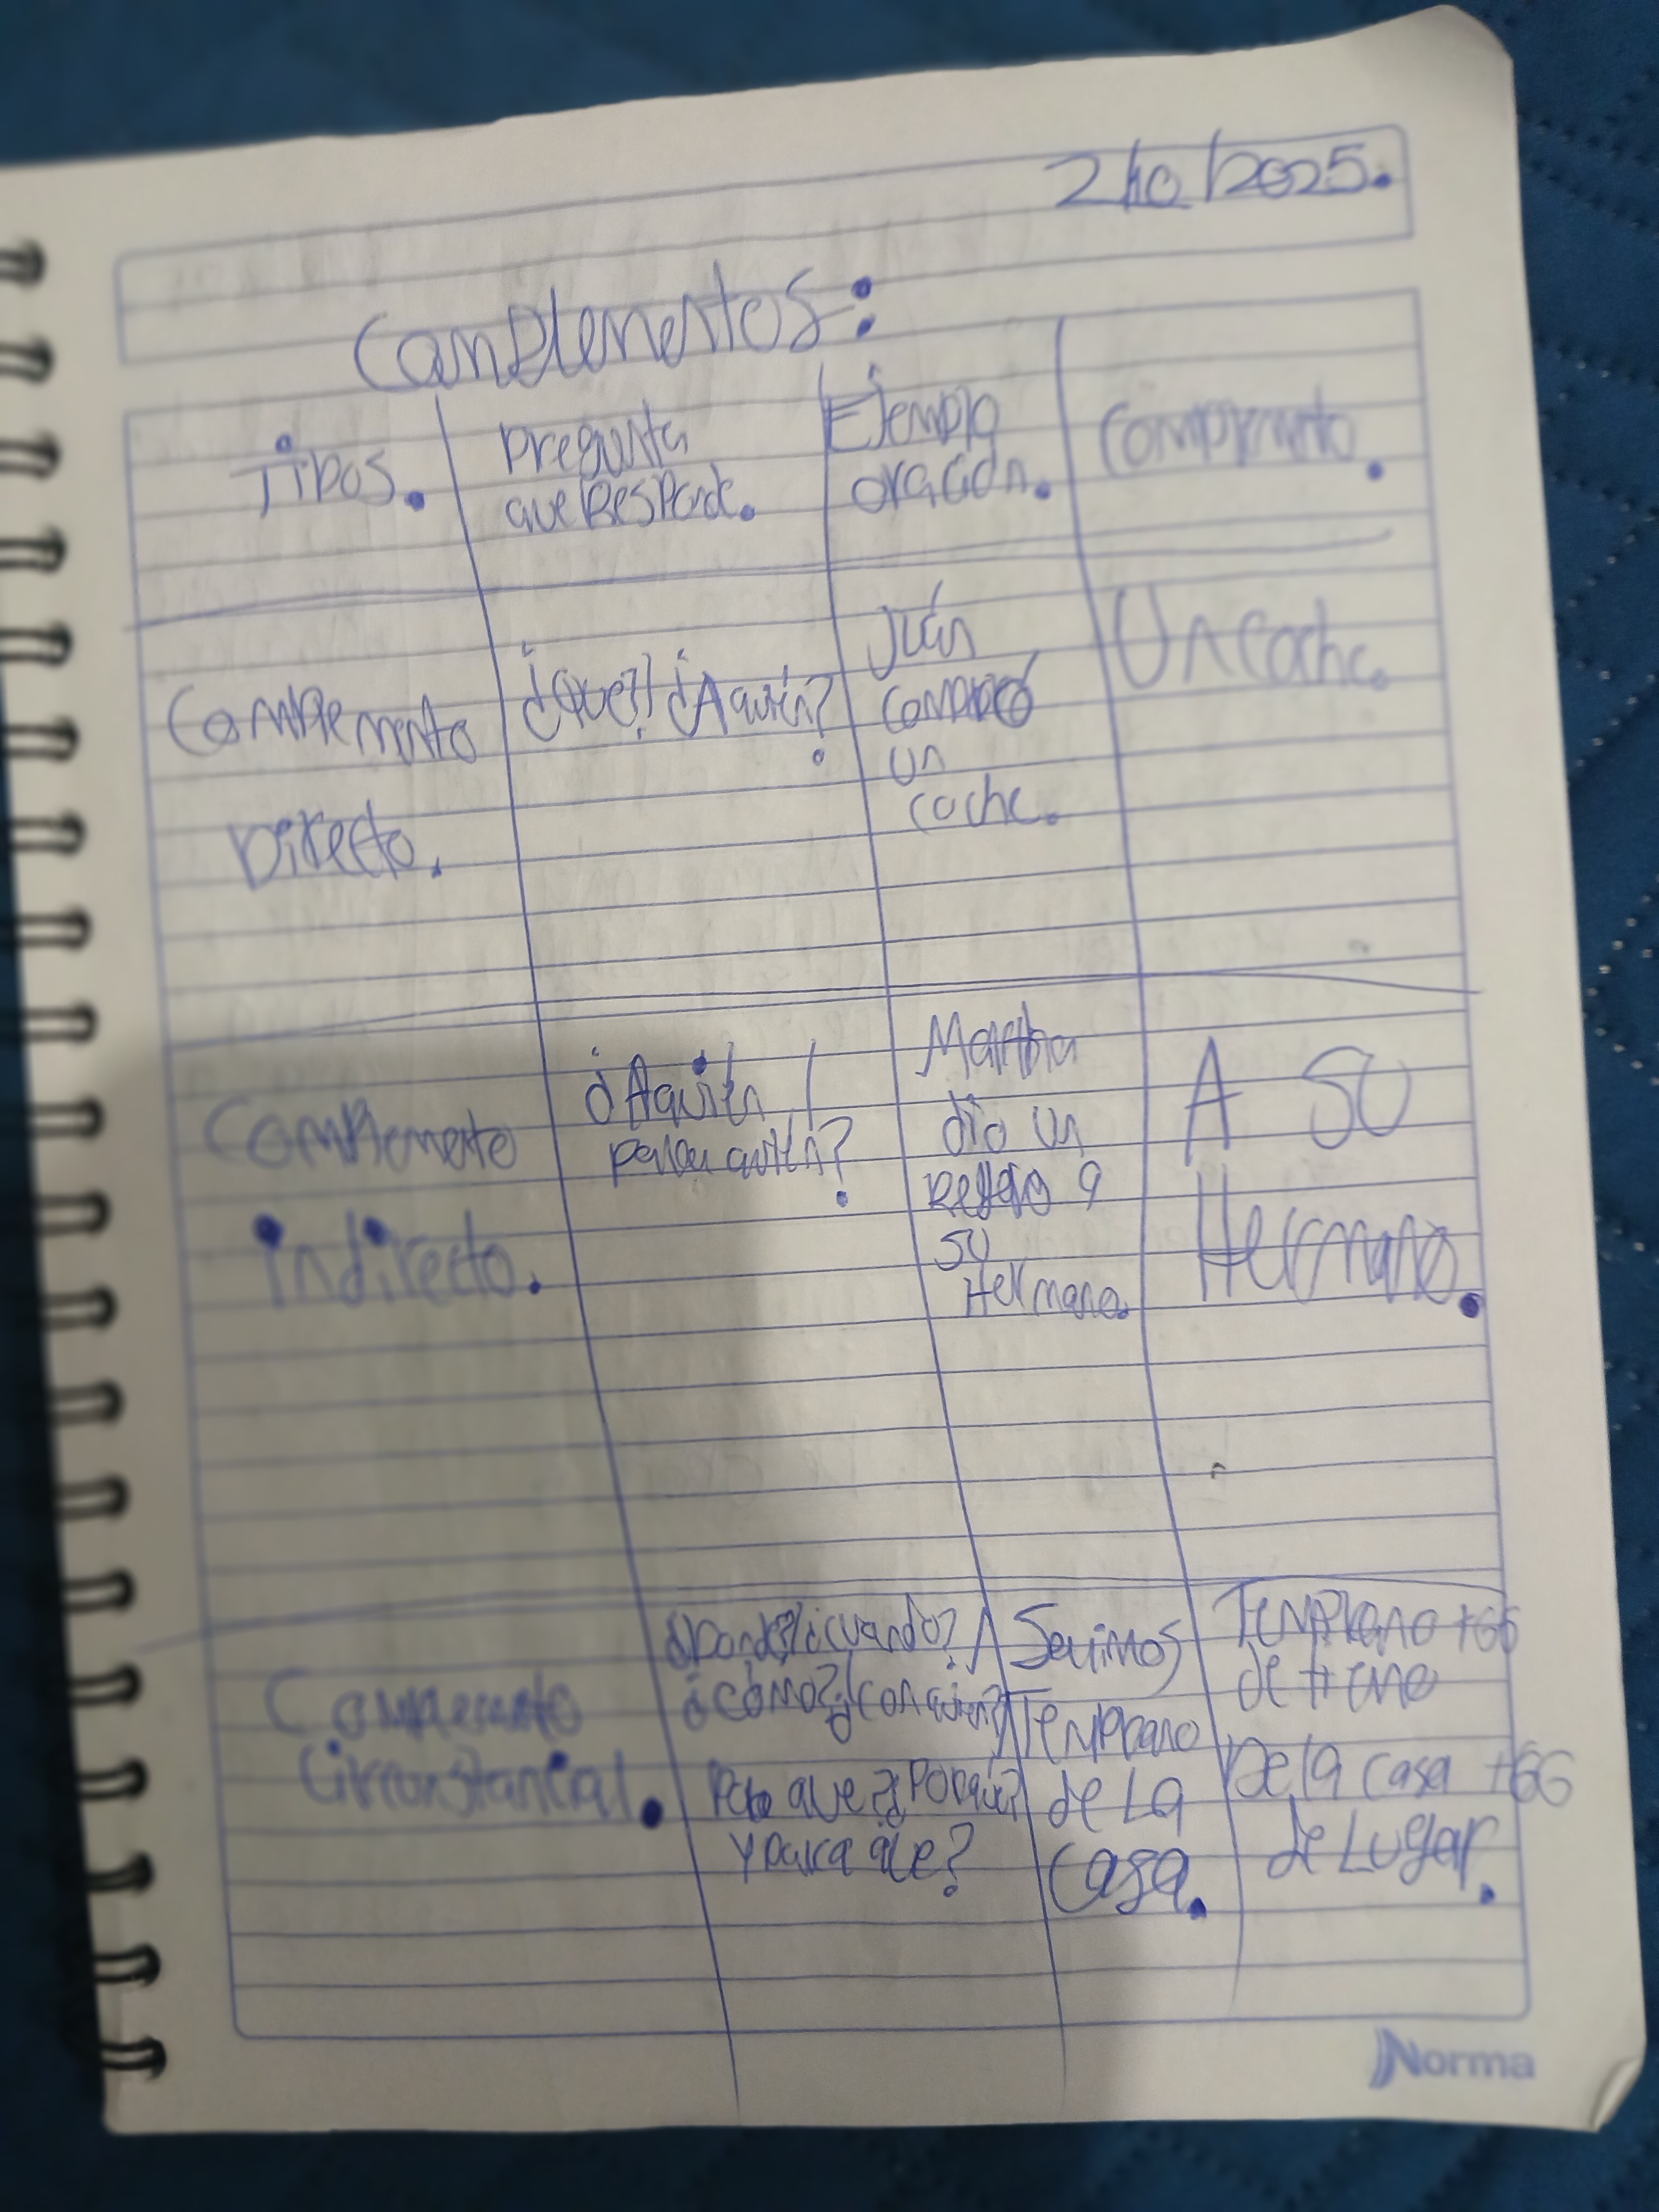 2/10/2025.
Complementos:
Tipos.
Pregunta
que Responde.
Ejemplo
oración.
Complemento.
Complemento
Directo.
¿Qué?/¿A quién?
Juán
compró
un
coche.
Un coche.
Complemento
indirecto.
¿A quién /
para quién?
Martha
dio un
regalo a
su
Hermano.
A su
Hermano.
Complemento
Circunstancial.
¿Donde?/¿cuando?/
¿cómo?/¿con quien?/
que?¿Por qué?
y para que?
Salimos
Temprano
de La
casa.
Temprano +GG
de tiempo
De la casa +GG
de Lugar.
Norma